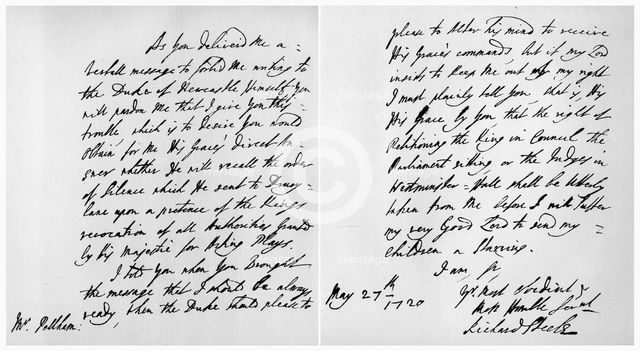 As You deliver'd Me a
verball message to forbid Me writing to
the Duke of Newcastle Himself You
will pardon Me that I give You this
trouble, which is to Desire You would
Obtain, for Me His Graces direct An-
swer whether He will recall the order
of Silence which He sent to Drury-
lane upon a pretence of the Kings
revocation of all Authorities Granted
by His Majestie for Acting Plays.
I told You when You Brought
the message that I should be always
ready, when the Duke should please to
Mr. Pellham:
please to Alter his mind to receive
His Graces commands, but if my Lord
insists to keep Me out of my right
I must plainly tell You, that is, His
His Grace by You, that the right of
Petitioning the King in Council the
Parliament sitting or the Judges in
Westminster-Hall shall be Utterly
taken from Me before I will Suffer
my very Good Lord to send my
children a Starving.
I am, Sr
Yr. Most Obedient &
Most Humble Servnt
Richard Steele
May 27th
1720
Heritage